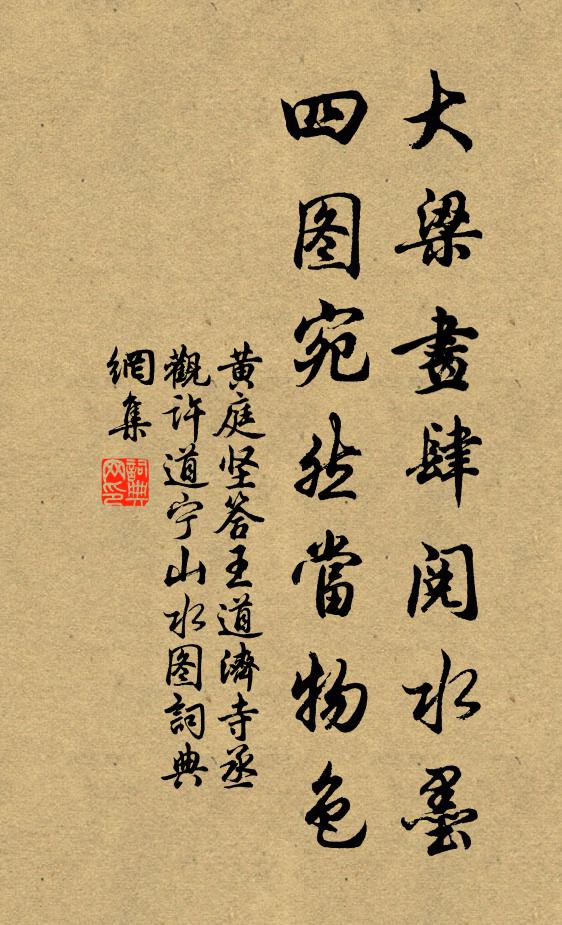 大梁畫肆閱水墨
四图宛然當物色
黄庭坚答王道濟寺丞
觀许道宁山水图詞典
網集
詞典網印